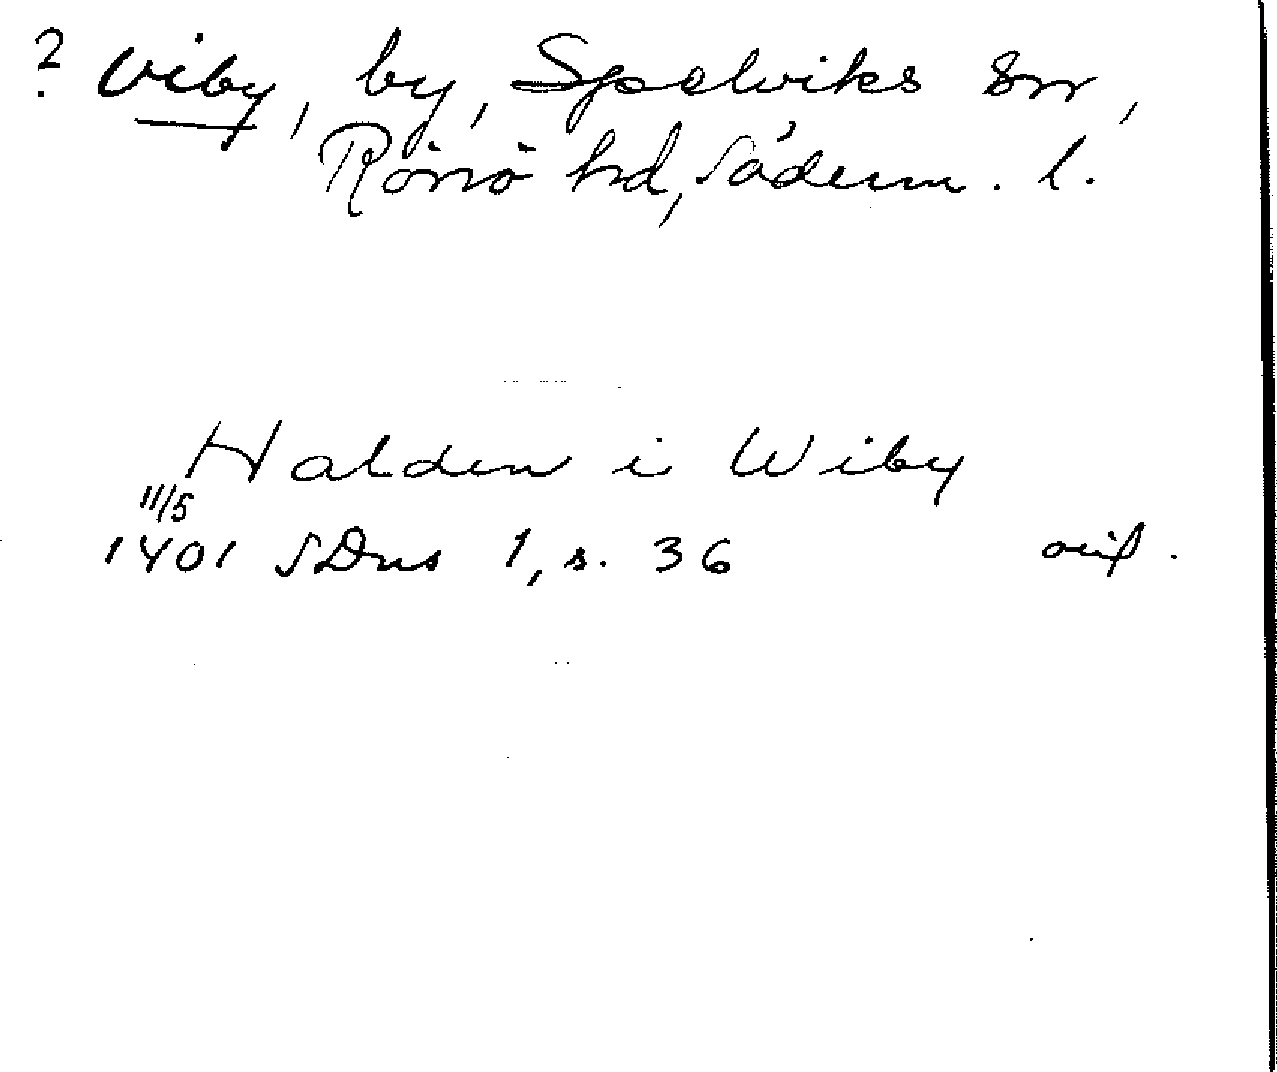 ? Viby, by, Spelviks sn,
Rönö hd, Söderm. l.
Halden i Wiby
11/5
1401 SDns 1, s. 36 orig.